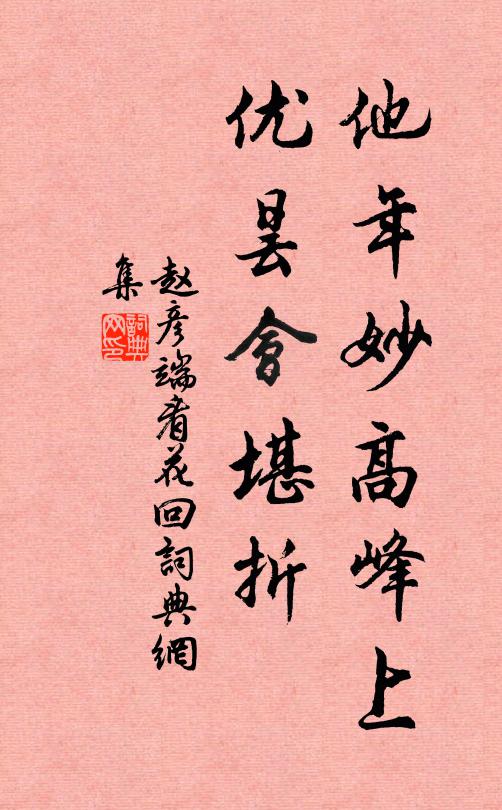 他年妙高峰上
优昙會堪折
赵彦端看花回詞典網
集
詞典
网印